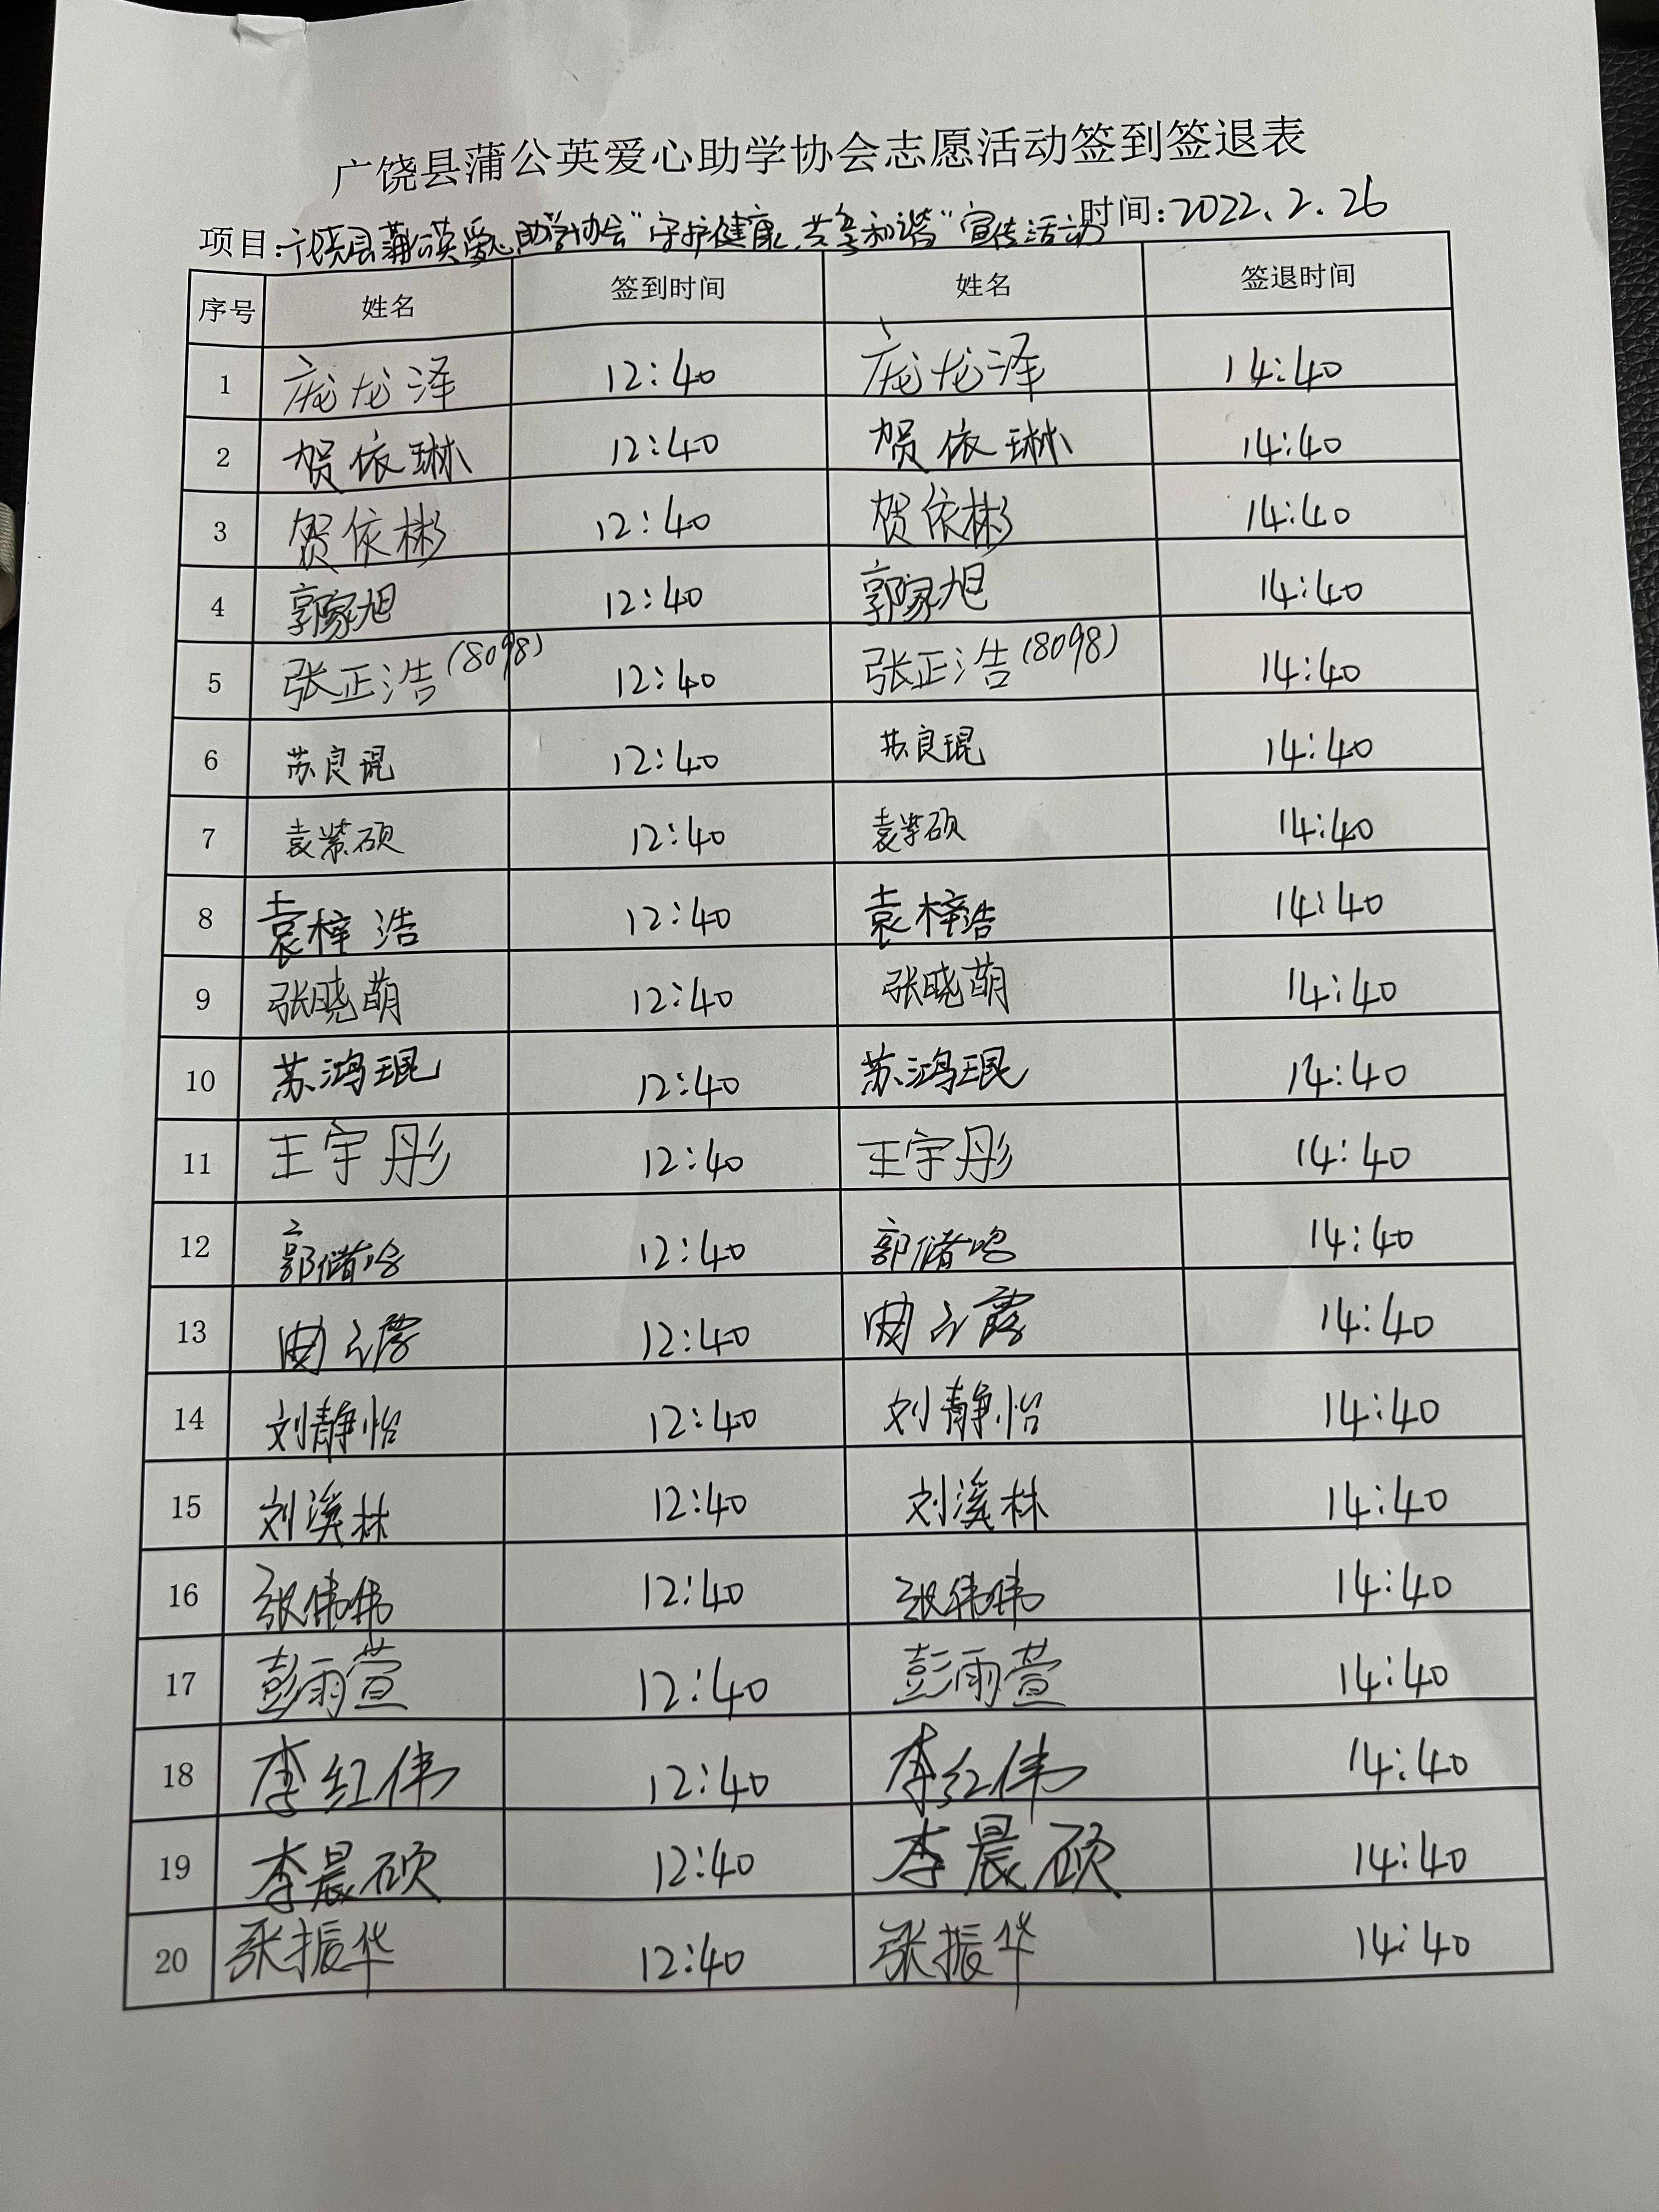 广饶县蒲公英爱心助学协会志愿活动签到签退表
项目:广饶县蒲公英爱心助学协会“守护健康,共享和谐”宣传活动 时间:2022.2.26
序号 姓名 签到时间 姓名 签退时间
1 庞龙泽 12:40 庞龙泽 14:40
2 贺依琳 12:40 贺依琳 14:40
3 贺依彬 12:40 贺依彬 14:40
4 郭家旭 12:40 郭家旭 14:40
5 张正浩(8098) 12:40 张正浩(8098) 14:40
6 苏良琨 12:40 苏良琨 14:40
7 袁紫硕 12:40 袁紫硕 14:40
8 袁梓浩 12:40 袁梓浩 14:40
9 张晓萌 12:40 张晓萌 14:40
10 苏鸿琨 12:40 苏鸿琨 14:40
11 王宇彤 12:40 王宇彤 14:40
12 12:40 14:40
13 12:40 14:40
14 刘静怡 12:40 刘静怡 14:40
15 刘溪林 12:40 刘溪林 14:40
16 张伟伟 12:40 张伟伟 14:40
17 彭雨萱 12:40 彭雨萱 14:40
18 李红伟 12:40 李红伟 14:40
19 李晨硕 12:40 李晨硕 14:40
20 张振华 12:40 张振华 14:40